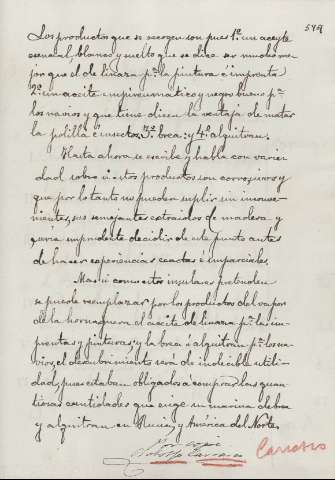 579
Los productos que se recogen son pues 1º. un aceyte
esencial, blanco y suelto que se dice ser mucho me-
jor que el de linaza pª. la pintura é imprenta
2º. un aceite empireumatico y negro bueno pª.
los navios y que tiene dicen la ventaja de matar
la polilla é insectos, 3º. brea: y 4º. alquitran.
Hasta ahora se escribe y habla con varie-
dad sobre si estos productos son corrosivos y
que por lo tanto no puedan suplir sin inconve-
nientes, sus semejantes extraidos de madera y
seria imprudente decidir de este punto antes
de hacer experiencias exactas é imparciales.
Mas si como estos insulares pretenden
se puede reemplazar por los productos del vapor
de la hornaguera el aceite de linaza pª. las im-
prentas y pinturas, y la brea ó alquitran pª. los na-
vios, el descubrimiento será de indecible utili-
dad, pues estaban obligados a comprar las quan-
tiosas cantidades que exige su marina de brea
y alquitran en Rusia y América del Norte.
Es copia
Carrasco